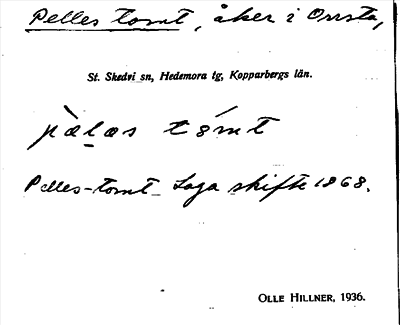 Pelles tomt, åker i Orrsta,
St. Skedvi sn, Hedemora tg, Kopparbergs län.
pæ̀las tómt
Pelles-tomt Laga skifte 1868.
OLLE HILLNER, 1936.